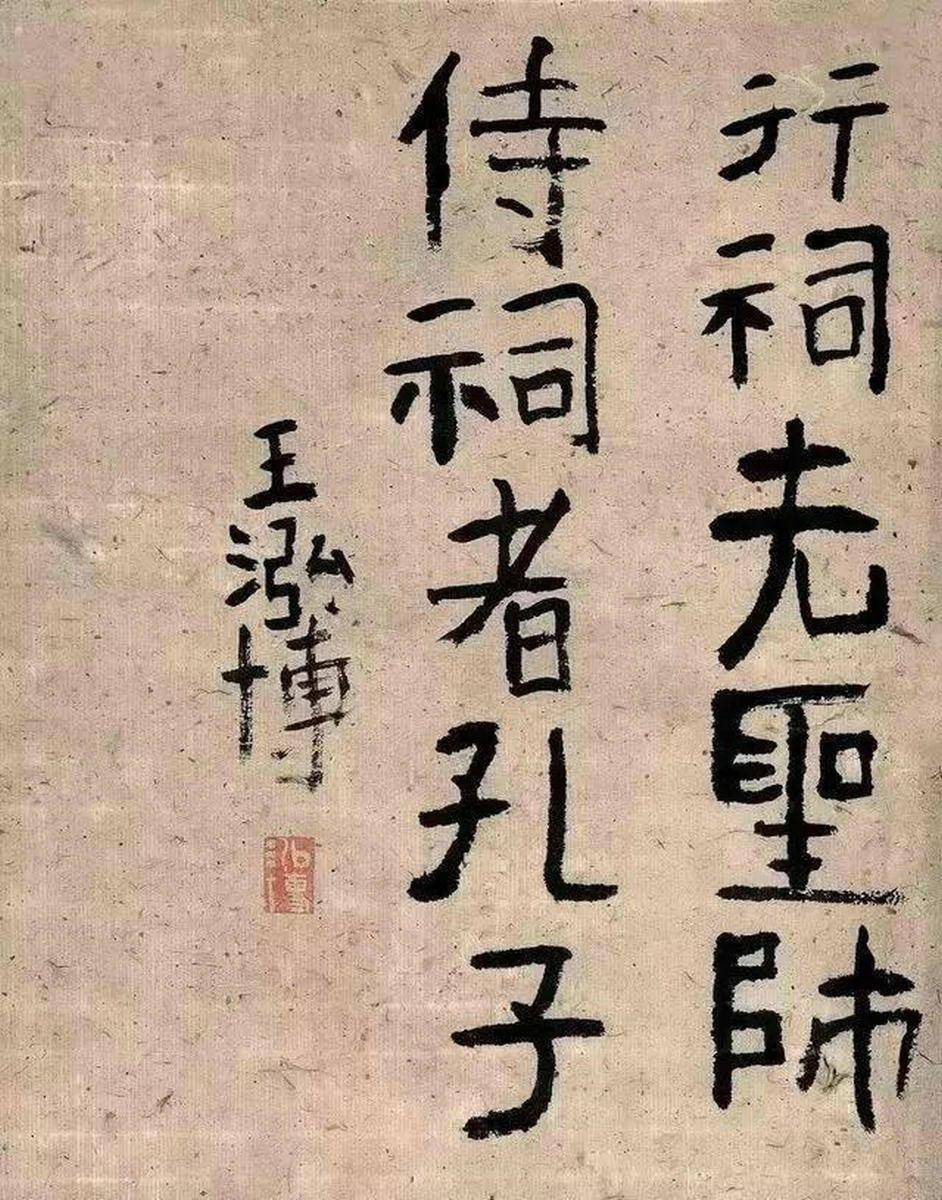 行祠先聖師
侍祠者孔子
王泓博